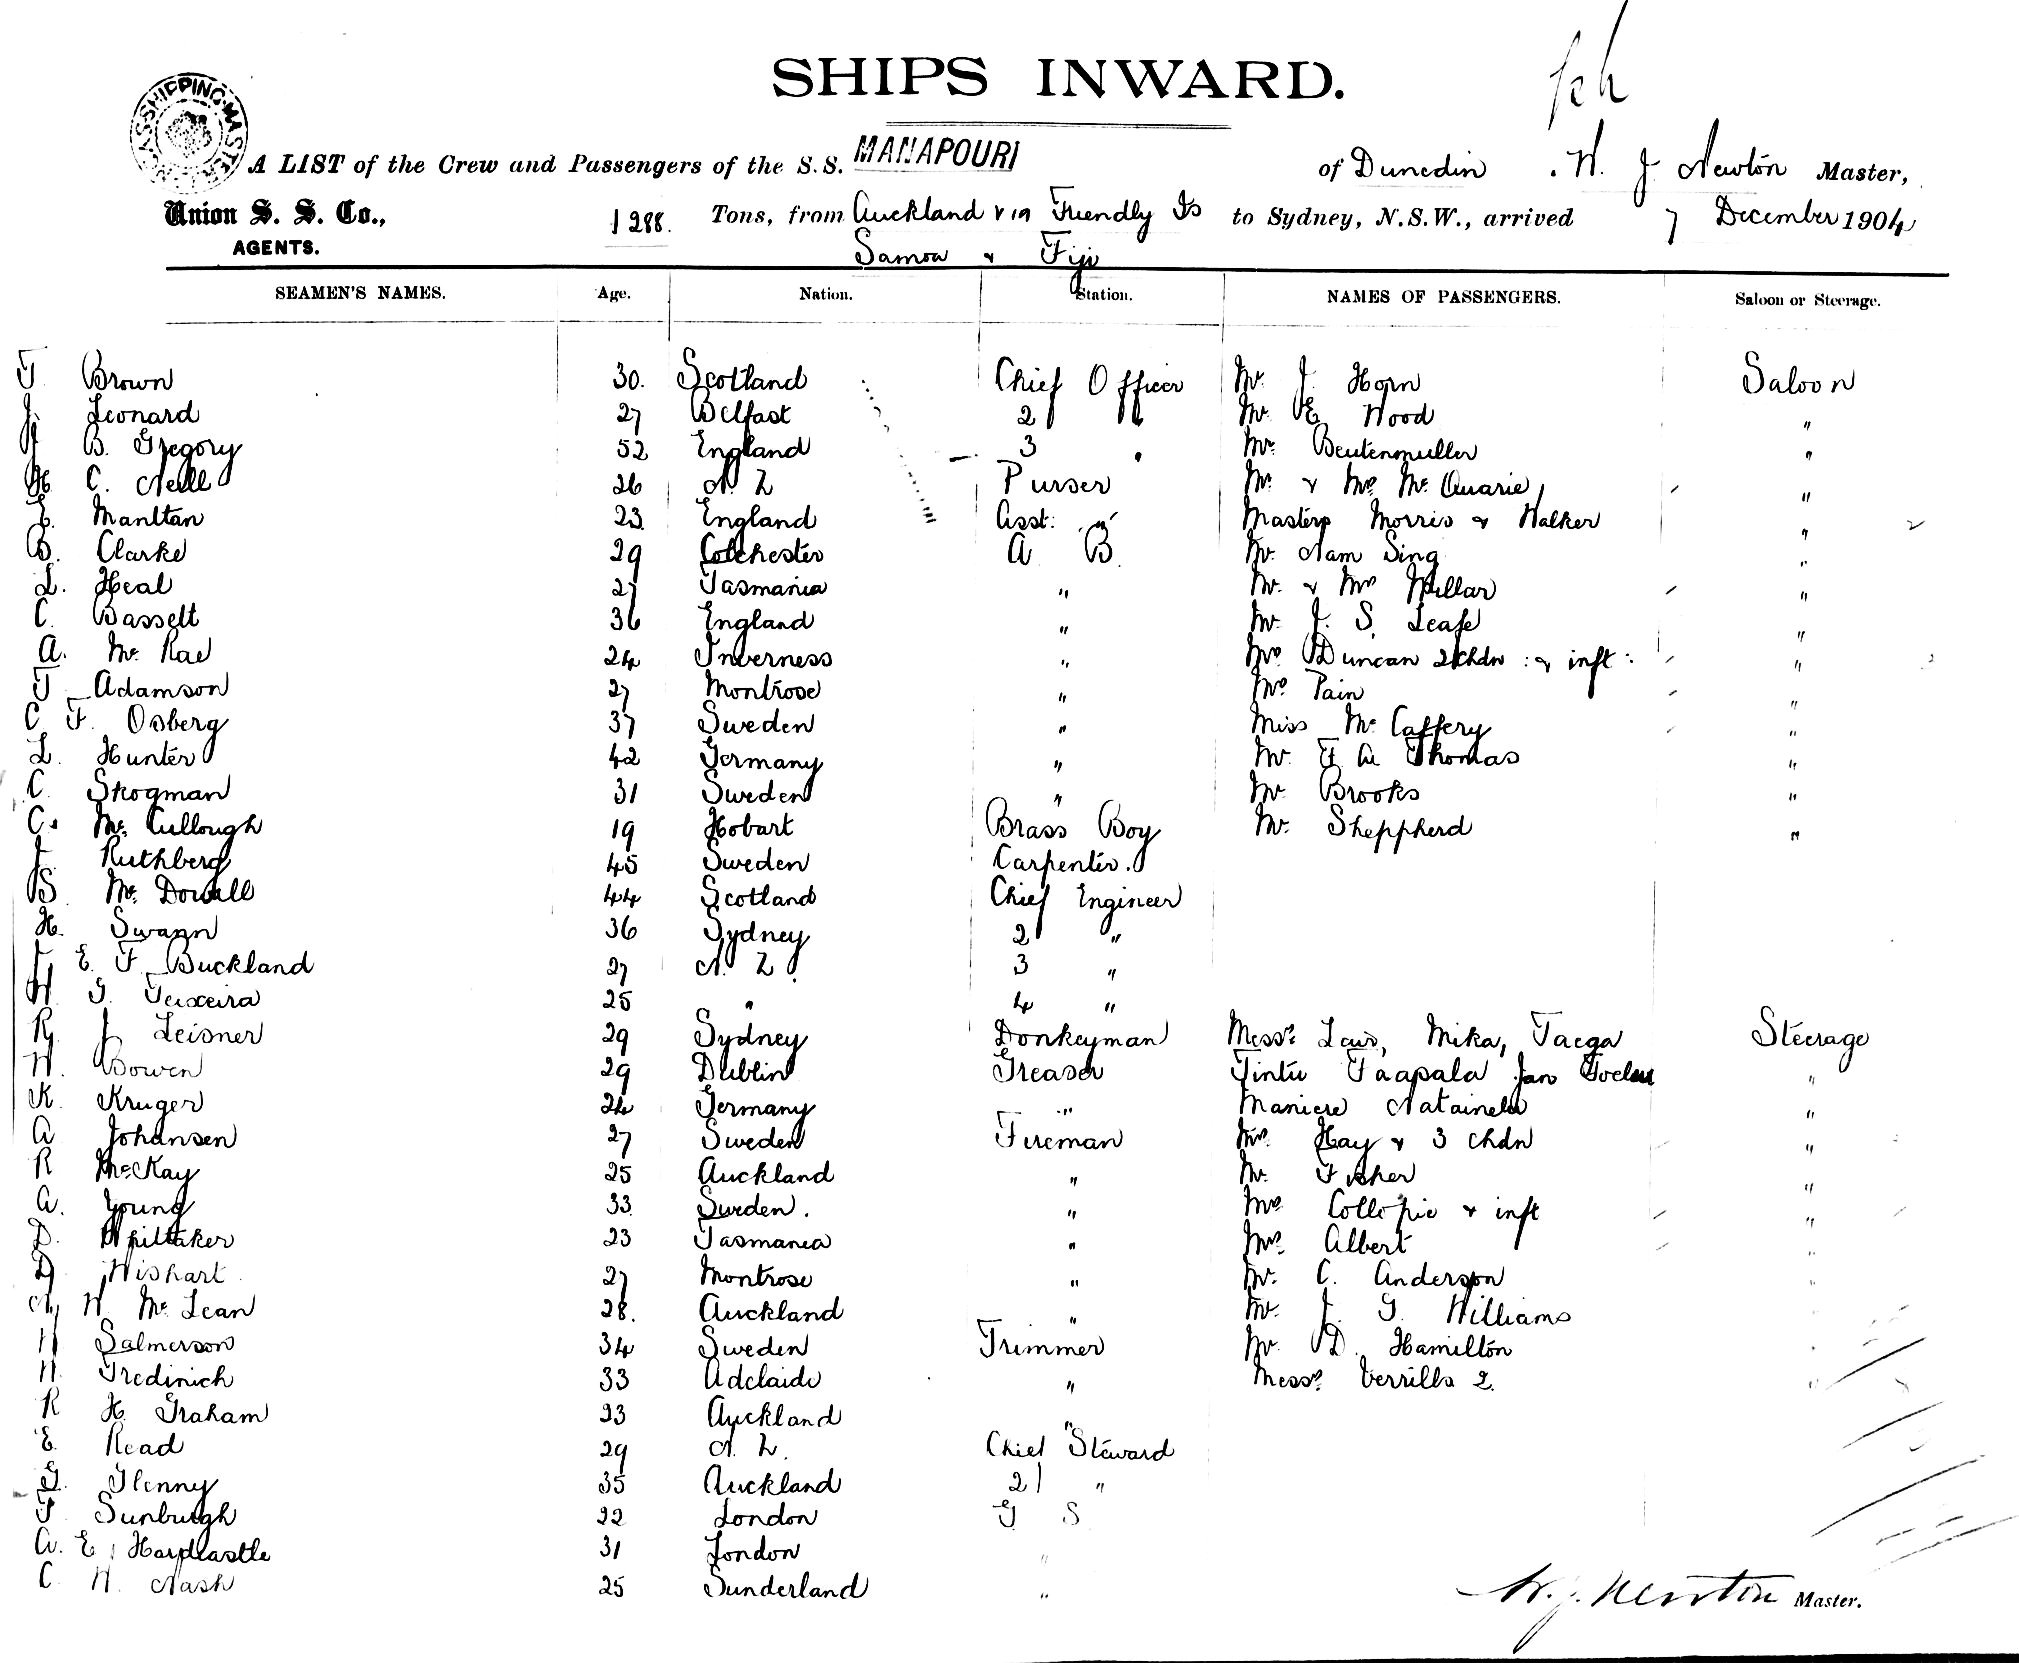 SHIPS INWARD.
A LIST of the Crew and Passengers of the S.S. MANAPOURI of Dunedin, W. J Newton Master,
Union S. S. Co., 1288. Tons, from Auckland via Friendly Is to Sydney, N.S.W., arrived 7 December 1904
AGENTS. Samoa & Fiji
SEAMEN'S NAMES. Age. Nation. Station. NAMES OF PASSENGERS. Saloon or Steerage.
T Brown 30. Scotland Chief Officer Mr. J. Horn Saloon
J. Leonard 27 Belfast 2 " Mr. E Wood "
B. Gregory 52 England 3 " Mr Beutenmuller "
H C. Nelle 26 N Z Purser Mr & Mrs Mc Quarie "
E. Manltan 23 England Asst. " Masters Morris & Walker "
B. Clarke 29 Colchester A B Mr. Nam Sing "
L. Heal 27 Tasmania " Mr. & Mrs Millar "
C. Bassett 36 England " Mr. J. S. Leafe "
A. Mc Rae 24 Inverness " Mrs Duncan 2 chdn : & inft : "
T Adamson 27 Montrose " Mrs Pain "
C F. Osberg 37 Sweden " Miss Mc Caffery "
L. Hunter 42 Germany " Mr. F A Thomas "
C. Skogman 31 Sweden " Mr Brooks "
C. Mc Cullough 19 Hobart Brass Boy Mr. Sheppherd "
J. Ruthberg 45 Sweden Carpenter.
B. Mc Dowall 44 Scotland Chief Engineer
H. Swann 36 Sydney 2 "
J E. F Buckland 27 N. Z. 3 "
W G. Teixeira 25 " 4 "
R J Leisner 29 Sydney Donkeyman Messrs Lavis, Mika, Taega Steerage
W. Bowen 29 Dublin Greaser Tintu Faapala Jan "
K. Kruger 24 Germany " Maniere Natainela "
A Johansen 27 Sweden Fireman Mrs. Hay & 3 chdn "
R McKay 25 Auckland " Mr. Fisher "
A. Young 33 Sweden. " Mrs Collopie & inft "
D. Whittaker 23 Tasmania " Mrs Albert "
D Wishart 27 Montrose " Mr. C. Anderson "
N W Mc Lean 28. Auckland " Mr. J. G. Williams
W Salmerson 34 Sweden Trimmer Mr. D. Hamilton
W. Tredinich 33 Adelaide " Messrs Verrills 2.
R H. Graham 23 Auckland "
E Read 29 N. Z. Chief Steward
G. Glenny 35 Auckland 2 "
F Sunburgh 22 London G S
A. E. Hardcastle 31 London "
C W. Nash 25 Sunderland "
W. J. Newton Master.